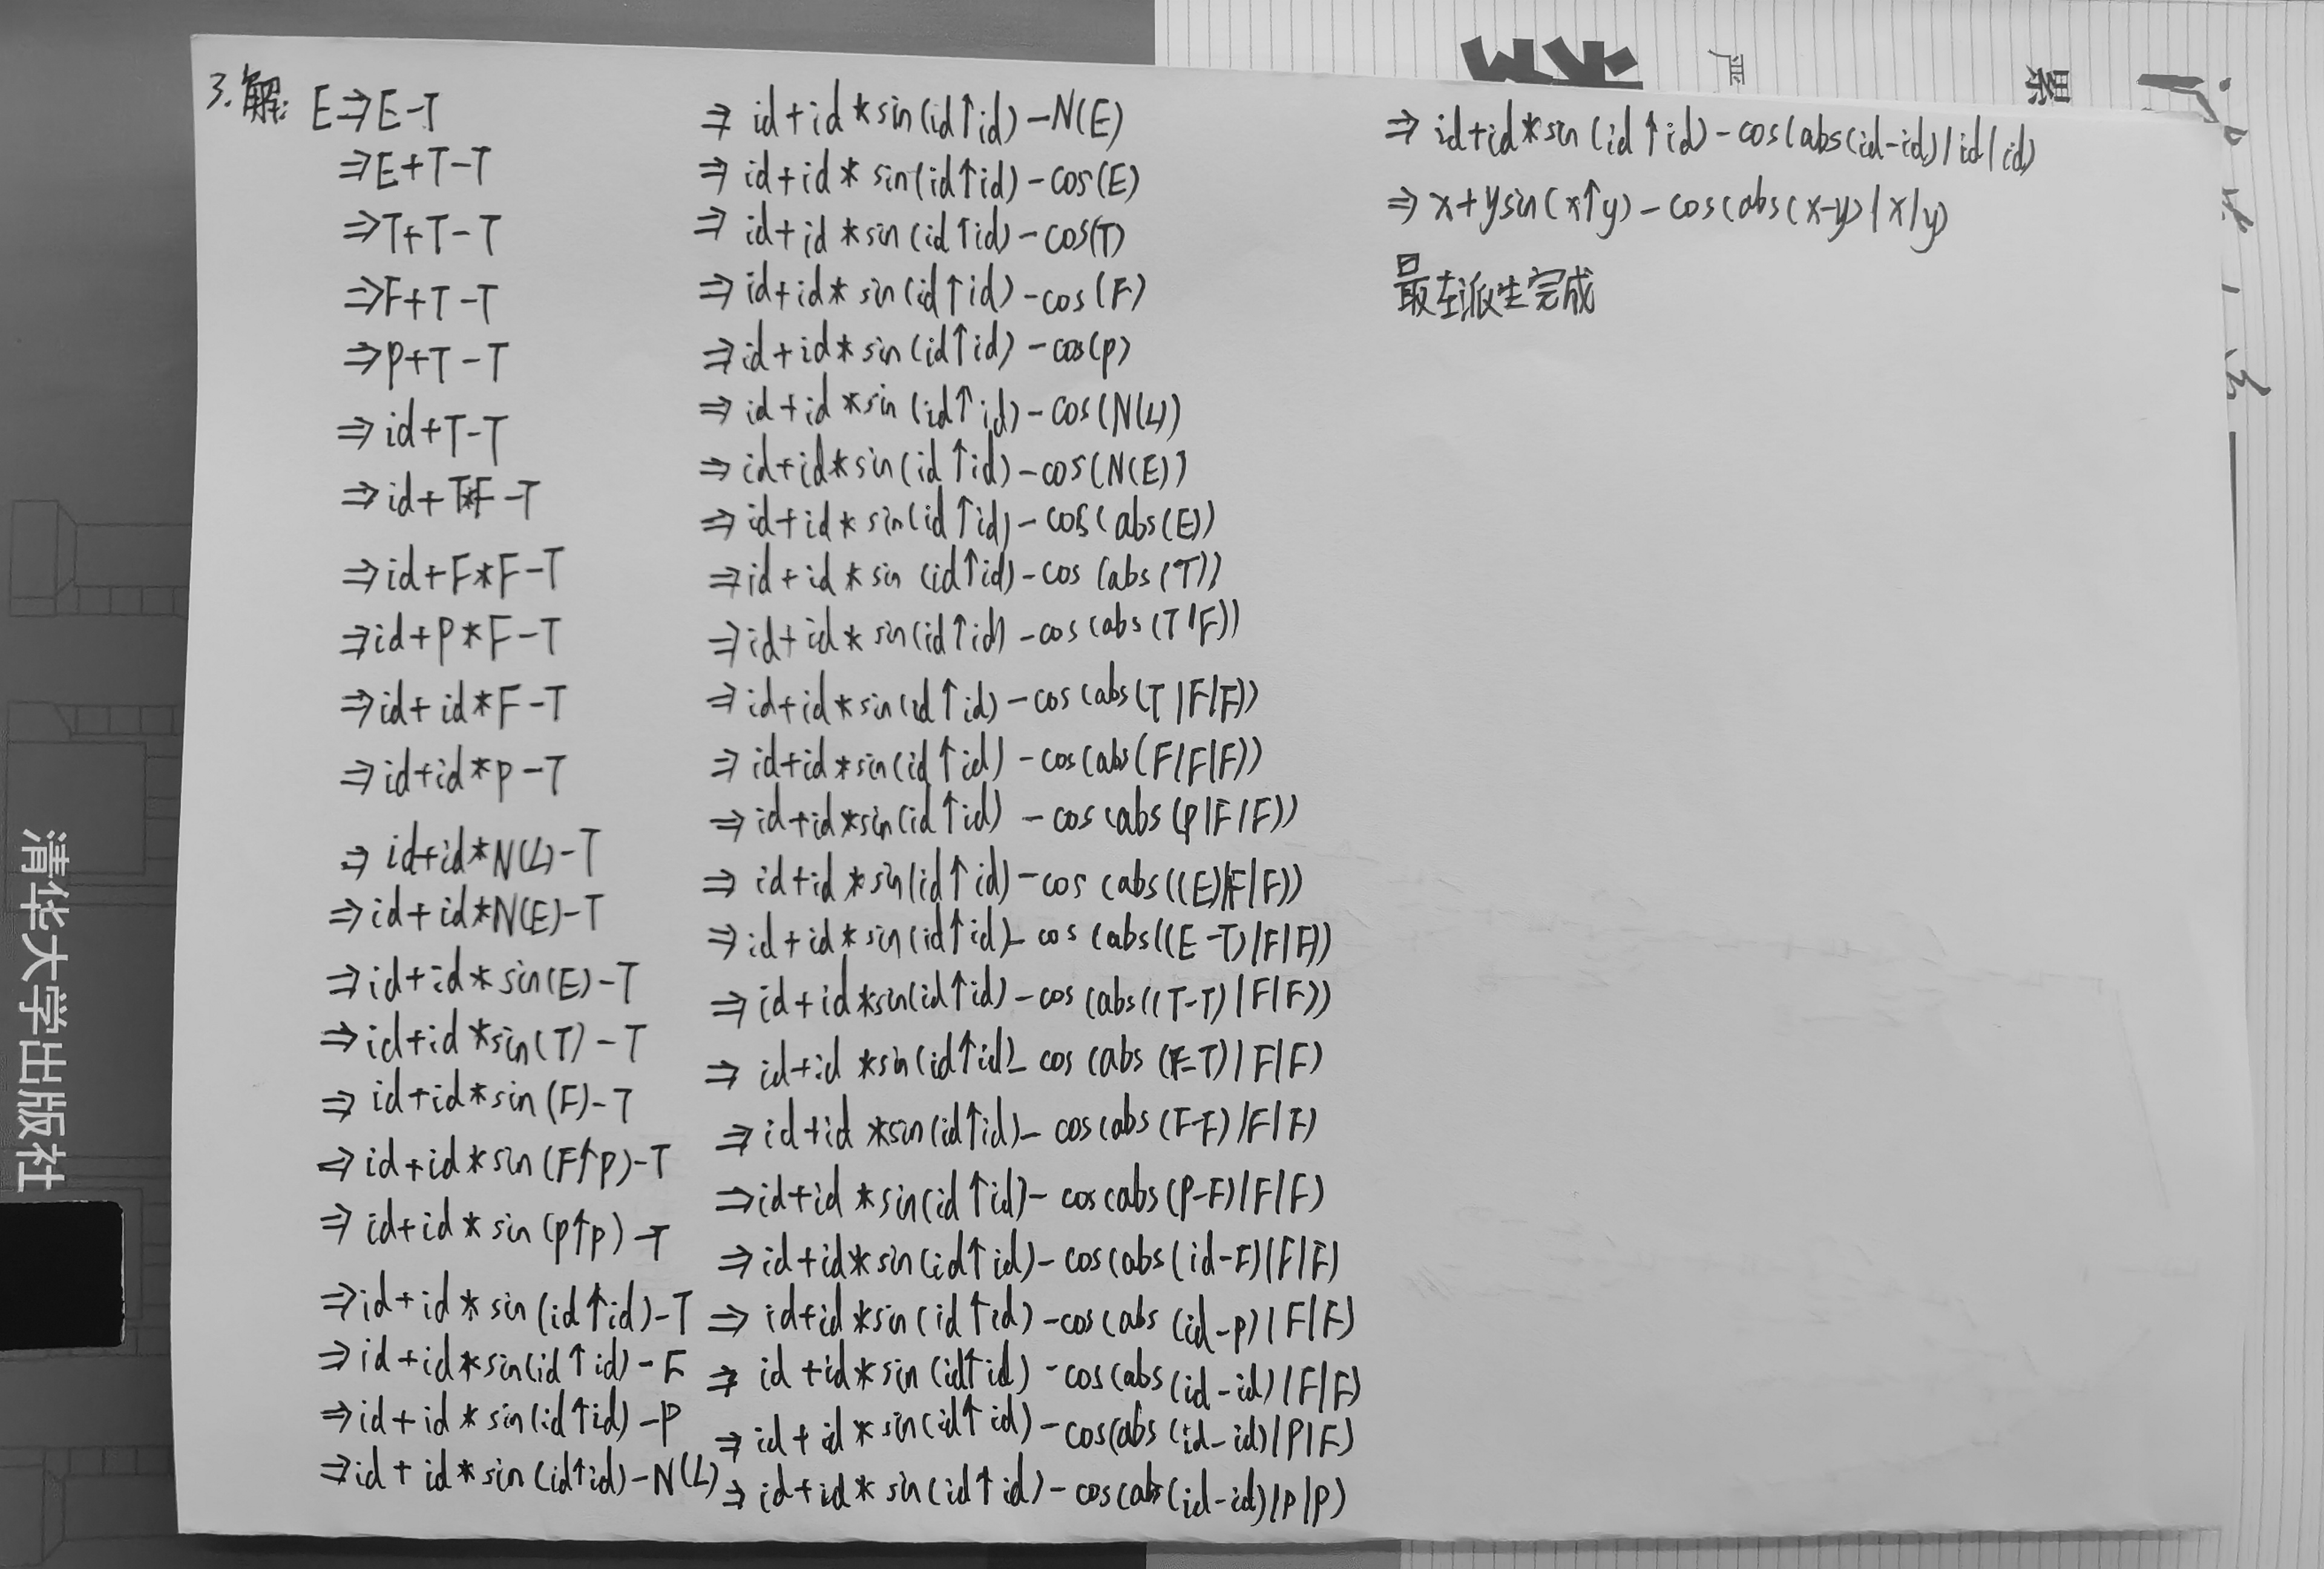 3.解: E⇒E-T
⇒E+T-T
⇒T+T-T
⇒F+T-T
⇒P+T-T
⇒id+T-T
⇒id+T*F-T
⇒id+F*F-T
⇒id+P*F-T
⇒id+id*F-T
⇒id+id*P-T
⇒id+id*N(L)-T
⇒id+id*N(E)-T
⇒id+id*sin(E)-T
⇒id+id*sin(T)-T
⇒id+id*sin(F)-T
⇒id+id*sin(F↑P)-T
⇒id+id*sin(P↑P)-T
⇒id+id*sin(id↑id)-T
⇒id+id*sin(id↑id)-F
⇒id+id*sin(id↑id)-P
⇒id+id*sin(id↑id)-N(L)
⇒id+id*sin(id↑id)-N(E)
⇒id+id*sin(id↑id)-cos(E)
⇒id+id*sin(id↑id)-cos(T)
⇒id+id*sin(id↑id)-cos(F)
⇒id+id*sin(id↑id)-cos(P)
⇒id+id*sin(id↑id)-cos(N(L))
⇒id+id*sin(id↑id)-cos(N(E))
⇒id+id*sin(id↑id)-cos(abs(E))
⇒id+id*sin(id↑id)-cos(abs(T))
⇒id+id*sin(id↑id)-cos(abs(T/F))
⇒id+id*sin(id↑id)-cos(abs(T/F/F))
⇒id+id*sin(id↑id)-cos(abs(F/F/F))
⇒id+id*sin(id↑id)-cos(abs(P/F/F))
⇒id+id*sin(id↑id)-cos(abs((E)/F/F))
⇒id+id*sin(id↑id)-cos(abs((E-T)/F/F))
⇒id+id*sin(id↑id)-cos(abs((T-T)/F/F))
⇒id+id*sin(id↑id)-cos(abs(F-T)/F/F)
⇒id+id*sin(id↑id)-cos(abs(F-F)/F/F)
⇒id+id*sin(id↑id)-cos(abs(P-F)/F/F)
⇒id+id*sin(id↑id)-cos(abs(id-F)/F/F)
⇒id+id*sin(id↑id)-cos(abs(id-P)/F/F)
⇒id+id*sin(id↑id)-cos(abs(id-id)/F/F)
⇒id+id*sin(id↑id)-cos(abs(id-id)/P/F)
⇒id+id*sin(id↑id)-cos(abs(id-id)/P/P)
⇒id+id*sin(id↑id)-cos(abs(id-id)/id/id)
⇒x+ysin(x↑y)-cos(abs(x-y)/x/y)
最左派生完成
清华大学出版社
严